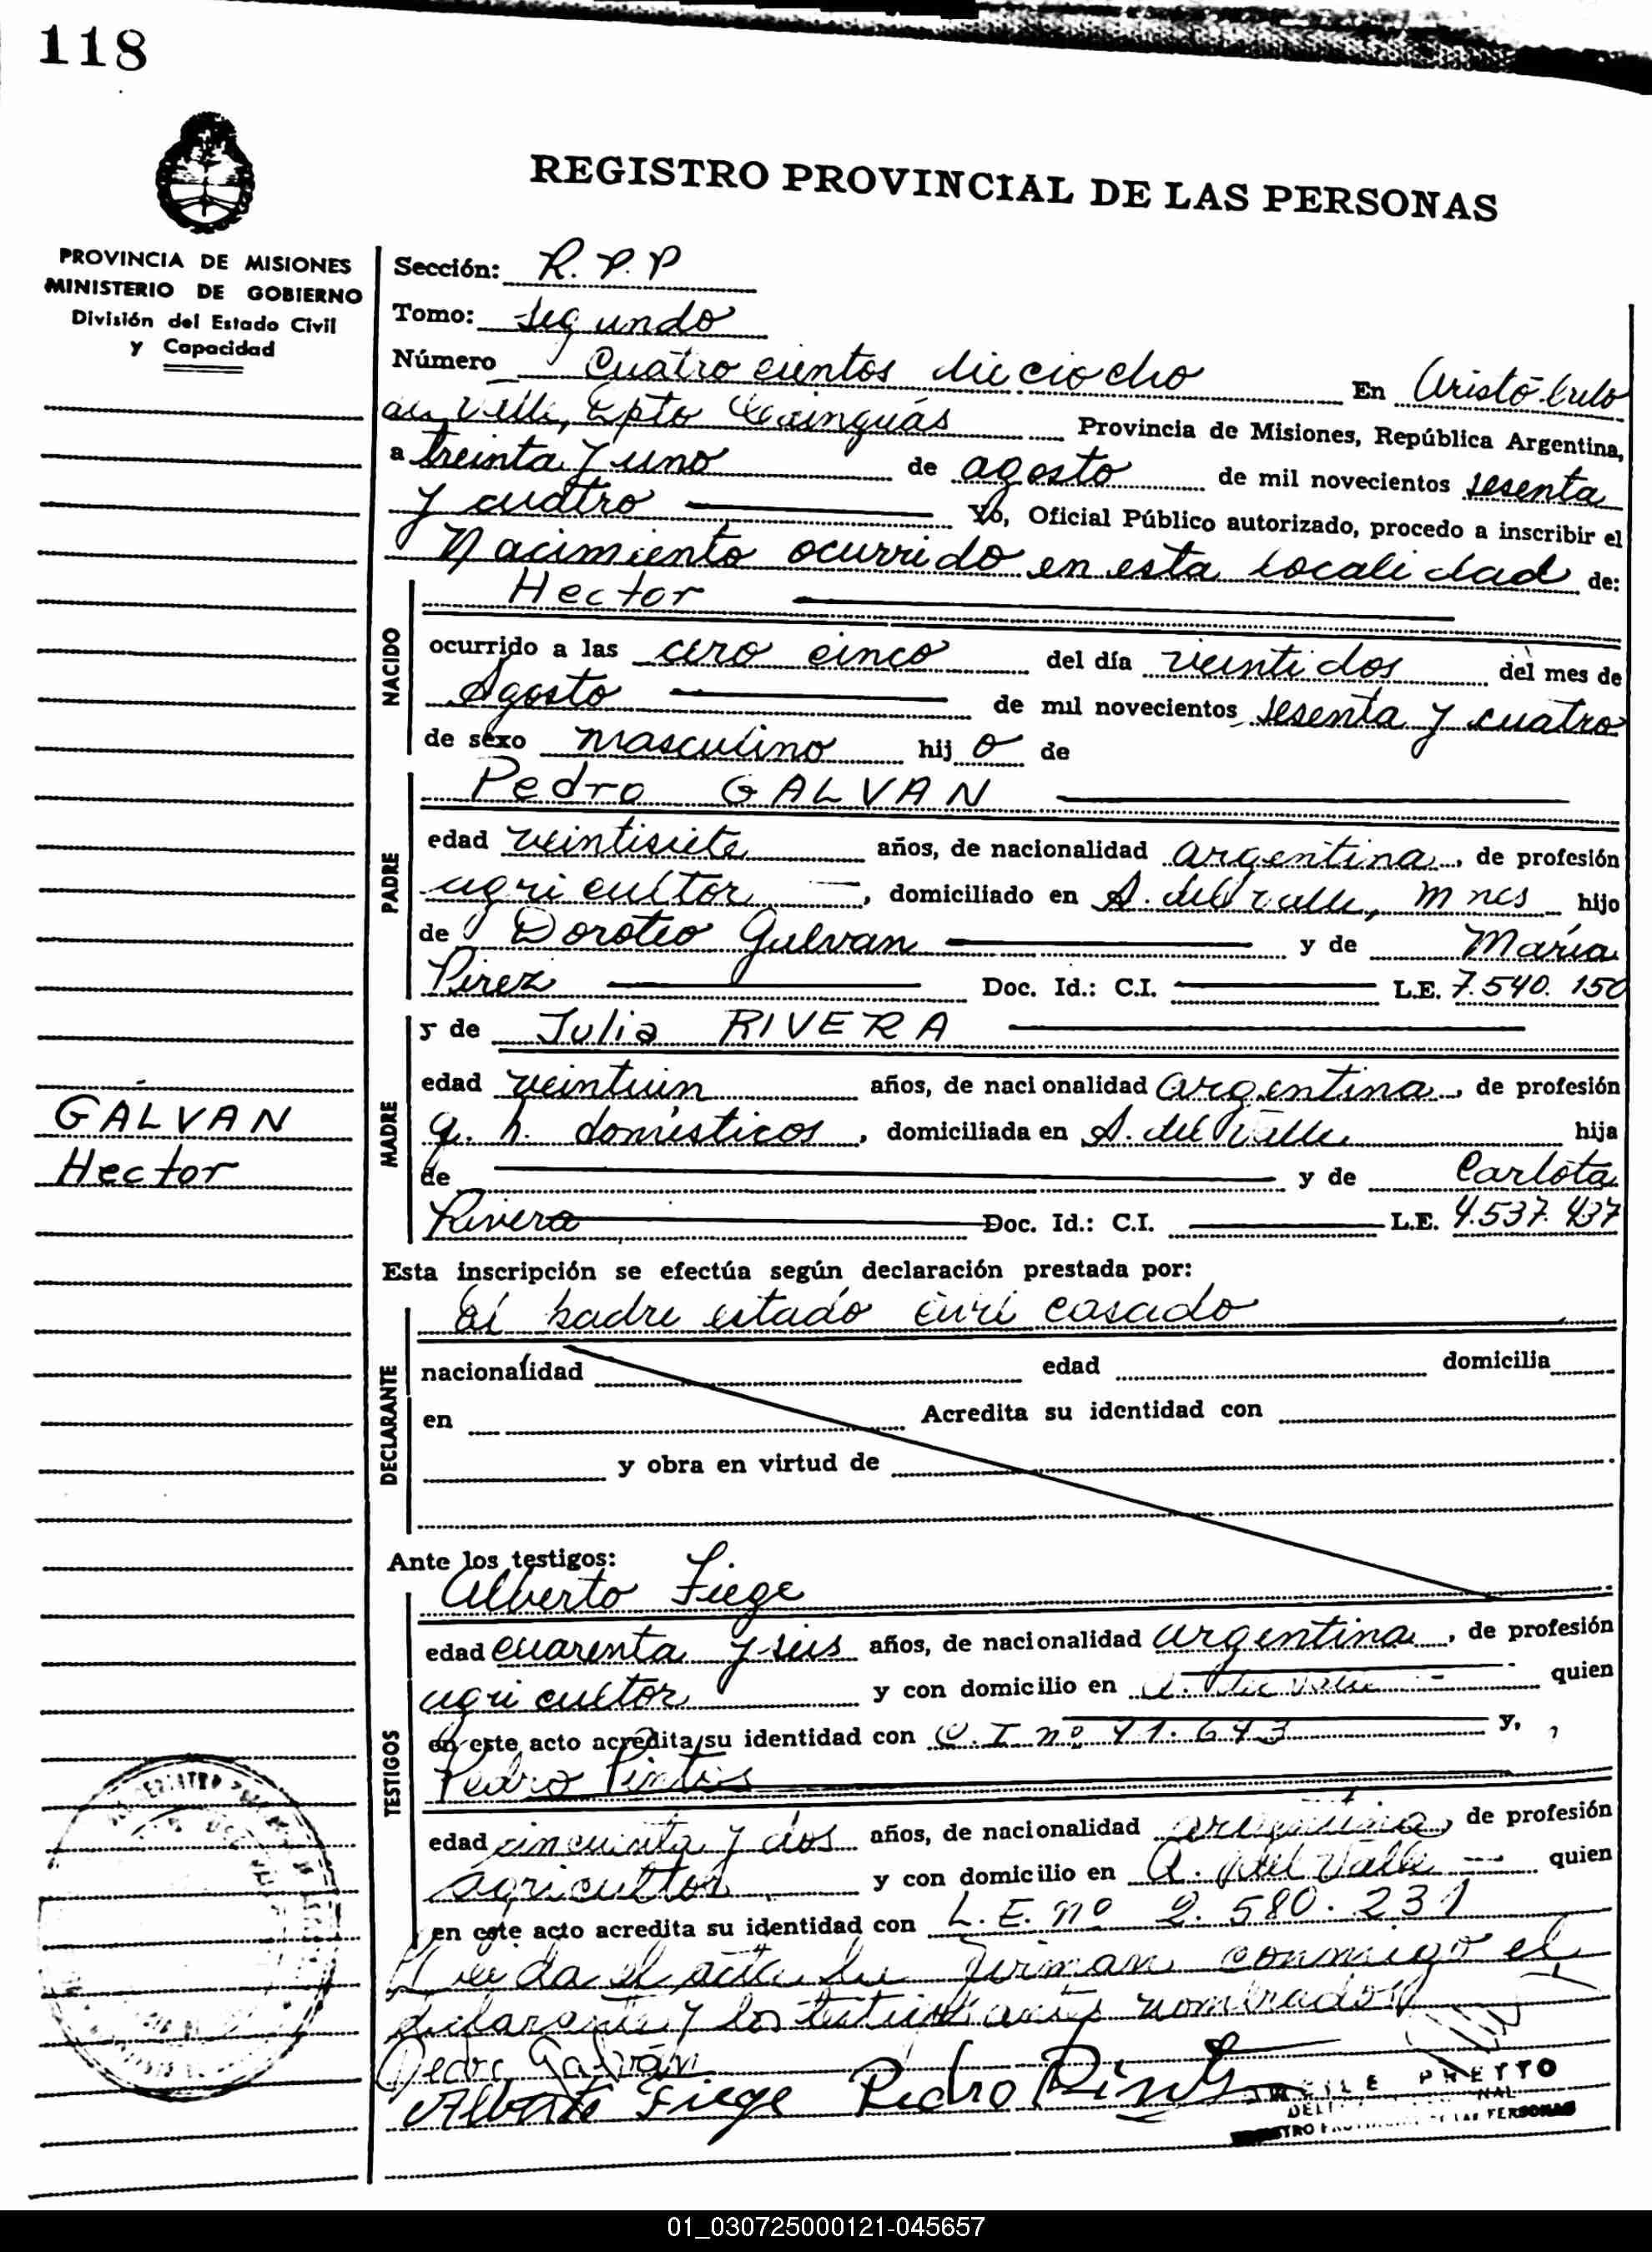 118
REGISTRO PROVINCIAL DE LAS PERSONAS
PROVINCIA DE MISIONES
MINISTERIO DE GOBIERNO
División del Estado Civil
y Capacidad
Sección: R.P.P
Tomo: segundo
Número Cuatro cientos dicciocho En Aristó bulo
del Valle, Dpto Cainguás Provincia de Misiones, República Argentina,
a treinta y uno de agosto de mil novecientos sesenta
y cuatro Yo, Oficial Público autorizado, procedo a inscribir el
Nacimiento ocurrido en esta localidad de:
NACIDO
Hector
ocurrido a las cero cinco del día veinti dos del mes de
Agosto de mil novecientos sesenta y cuatro
de sexo masculino hij o de
PADRE
Pedro GALVAN
edad veintisiete años, de nacionalidad argentina, de profesión
agricultor, domiciliado en A. del valle, Mnes hijo
de Doroteo Galvan y de María
Pirez Doc. Id.: C.I. L.E. 7.540.150
MADRE
y de Julia RIVERA
edad veintiun años, de nacionalidad argentina, de profesión
q. h. domésticos, domiciliada en A. del Valle hija
de y de Carlota
Rivera Doc. Id.: C.I. L.E. 4.537.437
GALVAN
Hector
Esta inscripción se efectúa según declaración prestada por:
DECLARANTE
El padre estado civil casado
nacionalidad edad domicilia
en Acredita su identidad con
y obra en virtud de
Ante los testigos:
TESTIGOS
Alberto Fiege
edad cuarenta y seis años, de nacionalidad argentina, de profesión
agricultor y con domicilio en A. del Valle quien
en este acto acredita su identidad con C.I nº 71.673 y,
Pedro Pintos
edad cincuenta y dos años, de nacionalidad argentina, de profesión
agricultor y con domicilio en A. del Valle quien
en este acto acredita su identidad con L.E. nº 2.580.231
Leida el acta la firman conmigo el
declarante y los testigos antes nombrados
Pedro Galván
Alberto Fiege Pedro Pintos
PRETTO
DE LAS PERSONAS
01_030725000121-045657